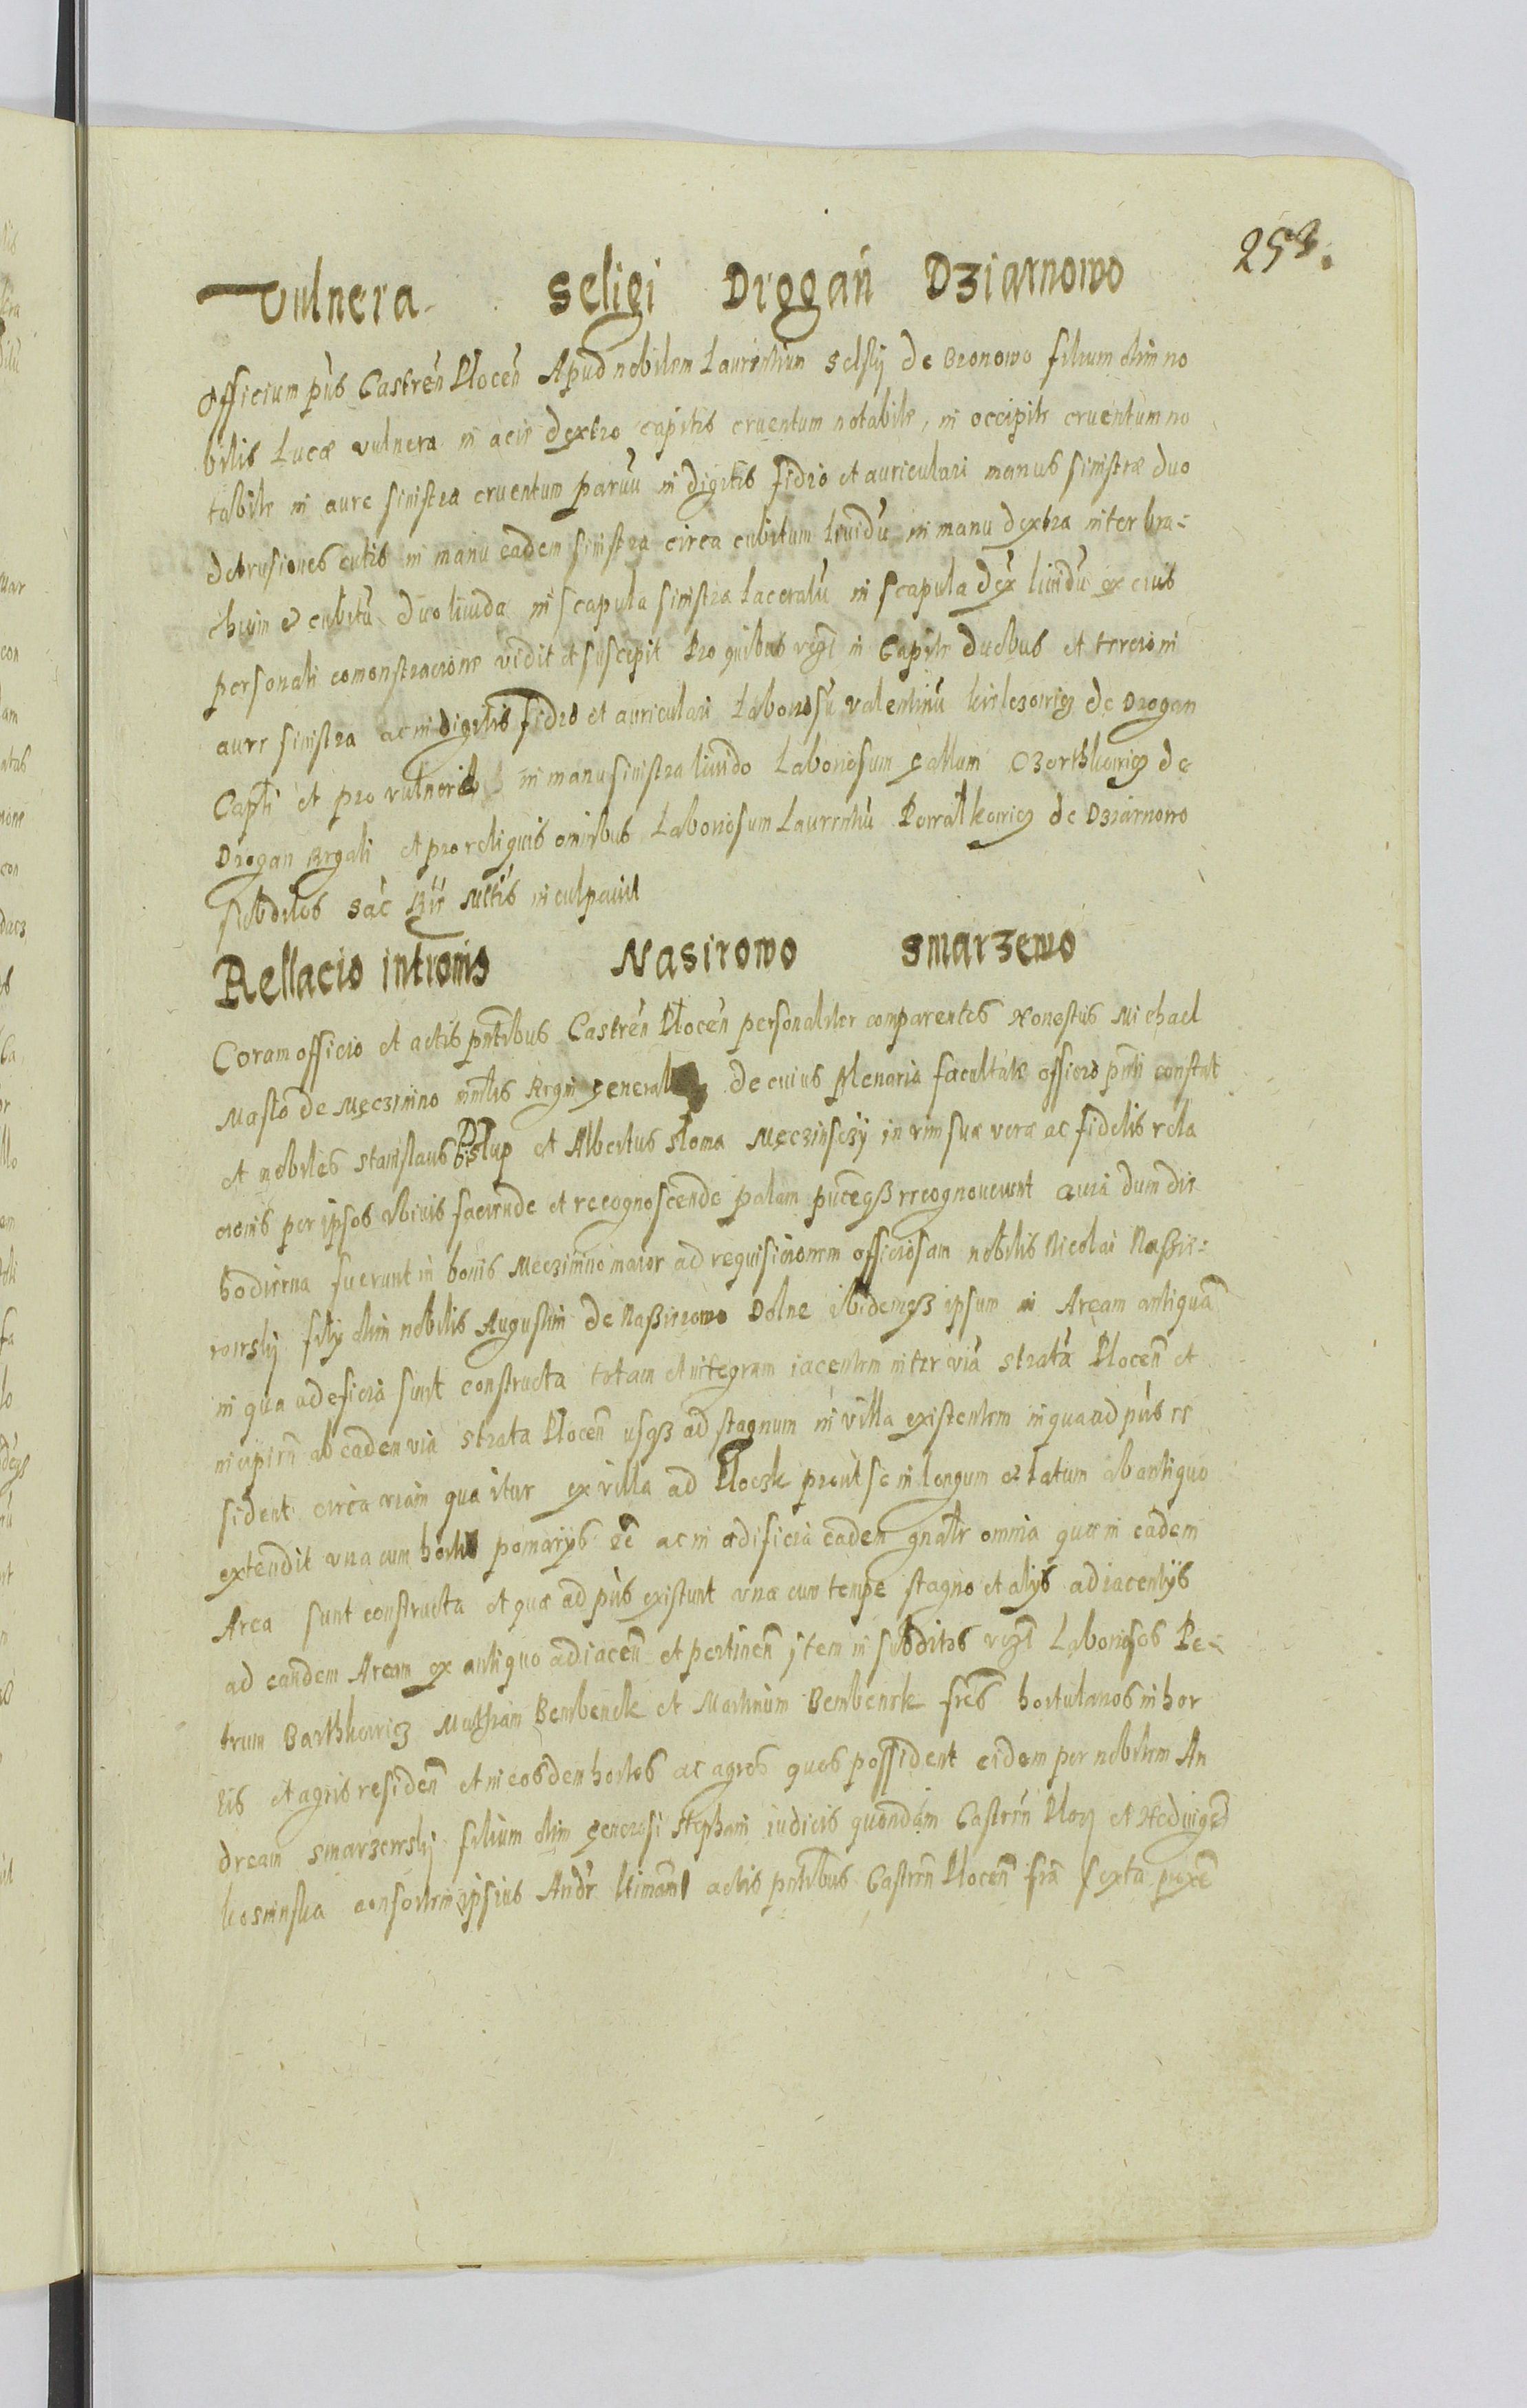 253.
Vulnera Seligi Drogań Dziarnowo
Officium pńs Castreń Ploceń Apud nobilem Laurentium Selskj de Bronowo filium olim no
bilis Lucæ vulnera in acie dextro capitis cruentum notabile, in occipite cruentum no
tabile in aure sinistra cruentum paruū in digitis fidio et auriculari manus sinistræ duo
detrusiones cutis in manu eadem sinistra circa cubitum liuidū in manu dextra inter bra-
chium & cubitū duo liuida in scapula sinistra laceratū in scapula dex liuidū ex eius
personali comonstracione vidit et suscepit Pro quibus in Capite duobus et tercio in
aure sinistra ac in digitis fidio et auriculari Laboriosū valentinū de Drogan
Capti et pro vulnerib in manu sinistra liuido Laboriosum gallum Ozorthkowicz de
Drogan Regali et pro reliquis omnibus Laboriosum Laurentiū de Dziarnowo
subditos Sac Rie Mttis inculpauit
Rellacio intromis Nasirowo Smarzewo
Coram officio et actis pntibus Castreń Plocen personaliter comparentes Honestus Michael
Masło de Męczinino mntis Regni general de cuius plenaria facultate officio pnti constat
et nobiles Stanislaus Biskup et Albertus słoma Męczinsczy in vim suæ veræ ac fidelis rela
cionis per ipsos abiuis faciende et recognoscende palam pucęqß recognouerunt quia dum die
hodierna fuerunt in bonis Meczinino maior ad requisicionem officiosam nobilis Nicolai Naßie-
rowskj filij olim nobilis Augustini de Naßirowo Dolne ibidemqß ipsum in Aream antiquā
in qua adeficia sunt constructa totam et integram iacentem inter viā stratā Plocen et
incipien ab eadem via strata Plocen usqß ad stagnum in villa existentem in qua ad pns re
sident circa viam qua itur ex villa ad Ploczk prout se in longum & latum ab antiquo
extendit vna cum hortis pomarijs &c ac in ædificia eadem gnalr omnia quæ in eadem
Area sunt constructa et quæ ad pns existunt vnæ cum stagno et alijs adiacentijs
ad eandem Aream ex antiquo adiacen et pertinen item in subditos Laboriosos Pe-
trum Barthkowicz Mathiam Bembenek et Martinum Bembenek fres hortulanos in hor
tis et agris residen et in eosdem hortos ac agros quos possident eidem per nobilem An
dream Smarzewskj filium olim generosi Stephani iudicis quondam Castren Plocen et Hedvigem
kosminska consortem ipsius Andr actis pntibus Castren Plocen fria sexta proxe